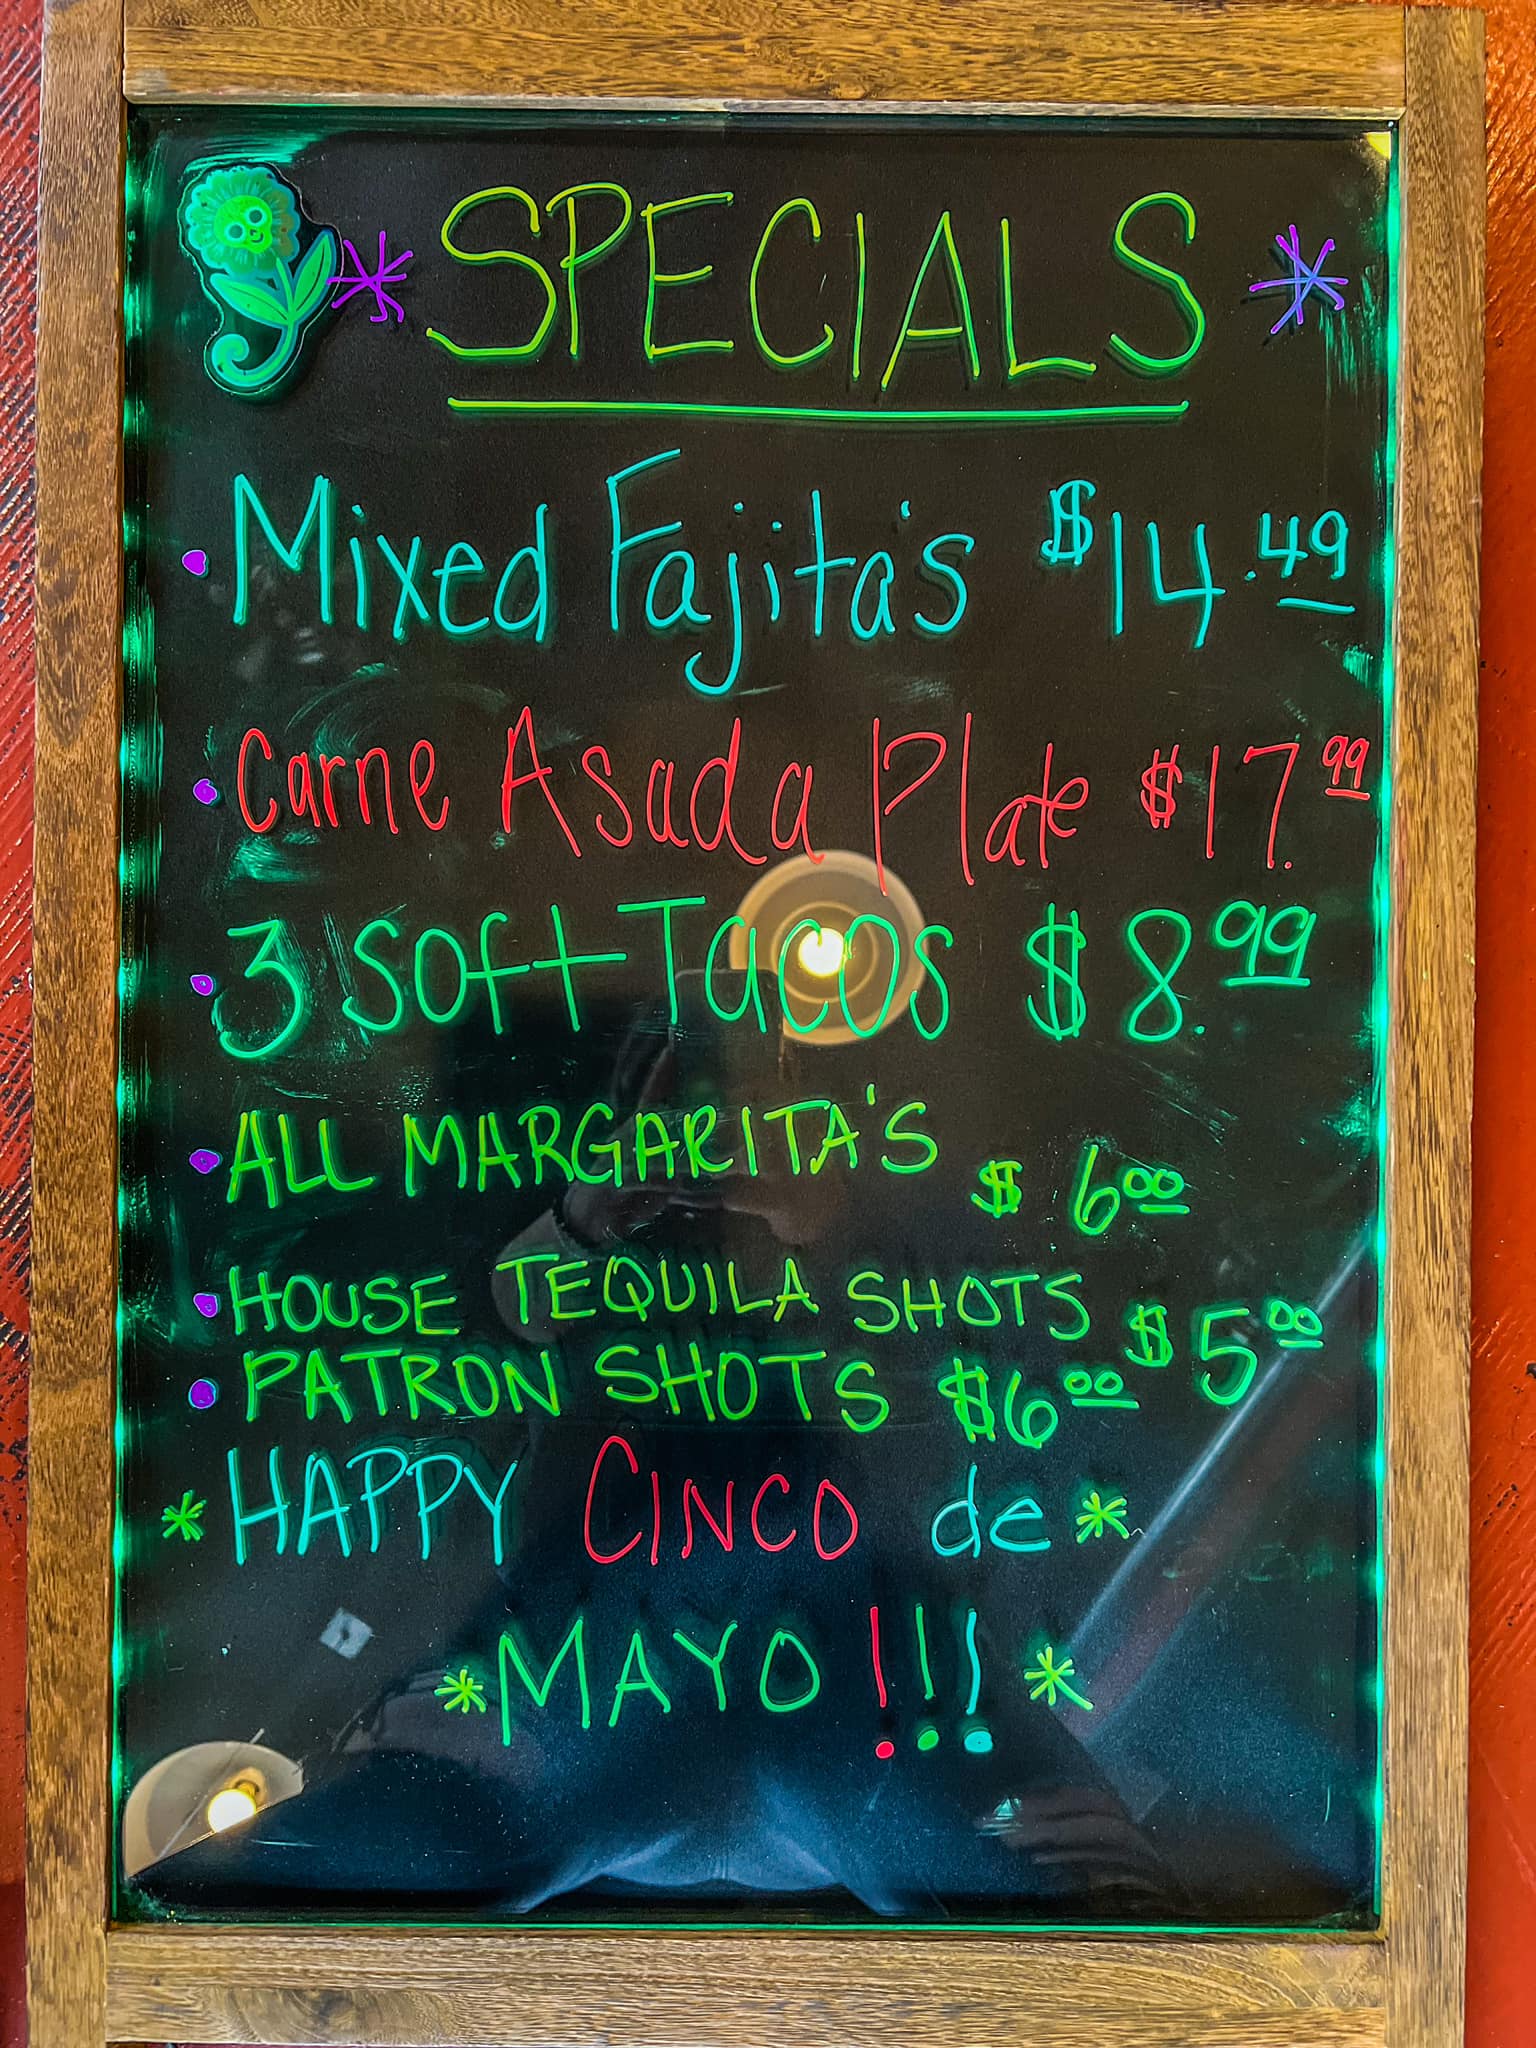 * SPECIALS *
• Mixed Fajita's $14.49
• Carne Asada Plate $17.99
• 3 Soft Tacos $8.99
• ALL MARGARITA'S $ 6.00
• HOUSE TEQUILA SHOTS $5.00
• PATRON SHOTS $6.00
* HAPPY CINCO de *
* MAYO !!! *